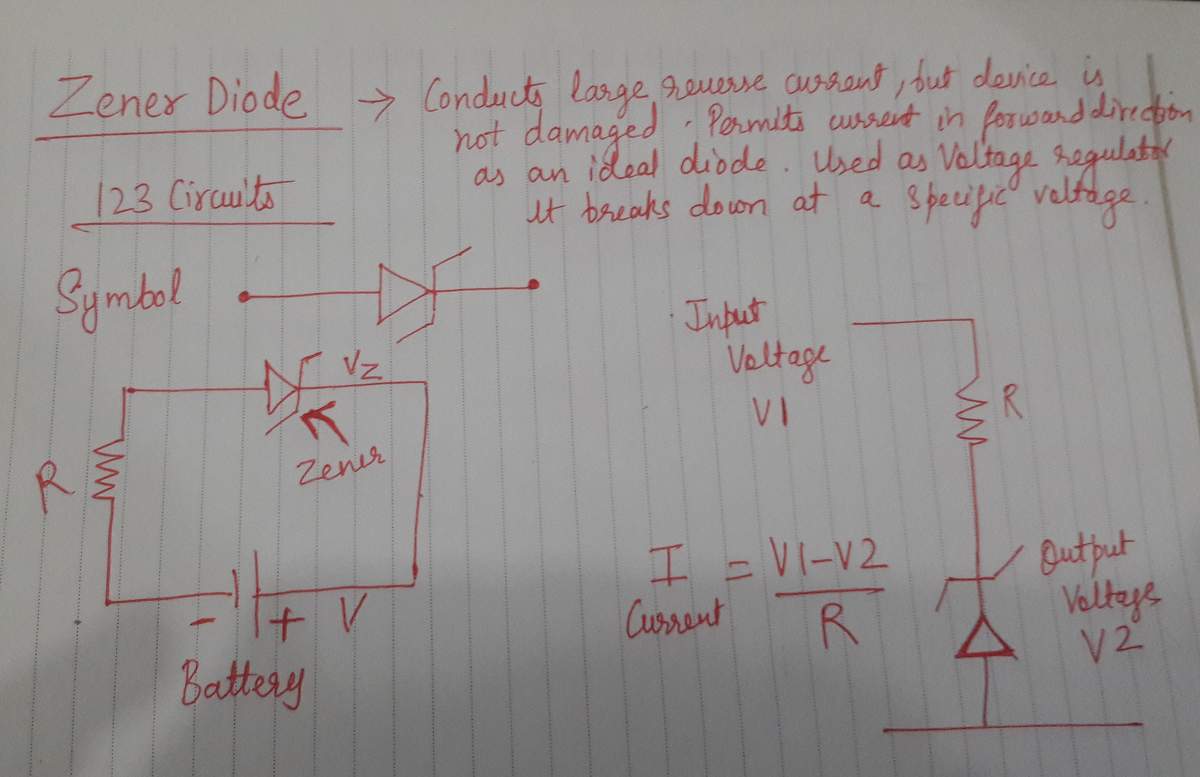 Zener Diode → Conducts large reverse current, but device is
not damaged. Permits current in forward direction
as an ideal diode. Used as Voltage regulator
It breaks down at a specific voltage.
123 Circuits
Symbol
Input
Voltage
V1
R
VZ
Zener
R
- + V
Battery
I = V1-V2
Current R
Output
Voltage
V2